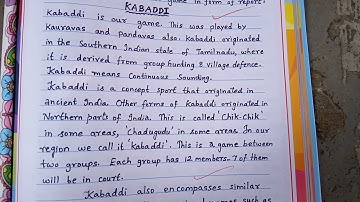 game in form of report.
KABADDI
Kabaddi is our game. This was played by
Kauravas and Pandavas also. Kabaddi originated
in the Southern Indian state of Tamilnadu, where
it is derived from group hunting & village defence.
Kabaddi means Continuous Sounding.
Kabaddi is a concept sport that originated in
ancient India. Other forms of Kabaddi originated in
Northern parts of India. This is called 'Chik-Chik'
in some areas, 'Chadugudu' in some areas. In our
region we call it 'Kabaddi'. This is a game between
two groups. Each group has 12 members. 7 of them
will be in court.
Kabaddi also encompasses similar
such as